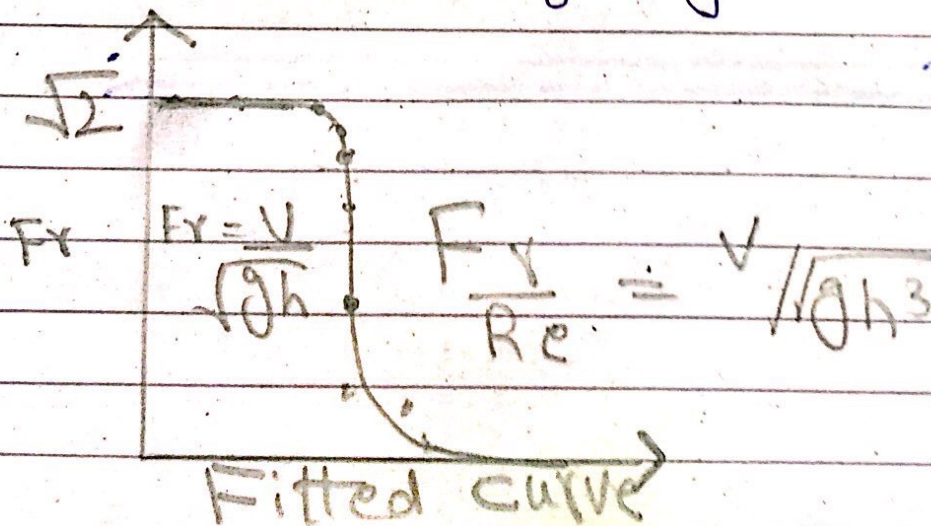 √2
Fr
Fr = V/√gh
Fr/Re = V/√gh³
Fitted curve